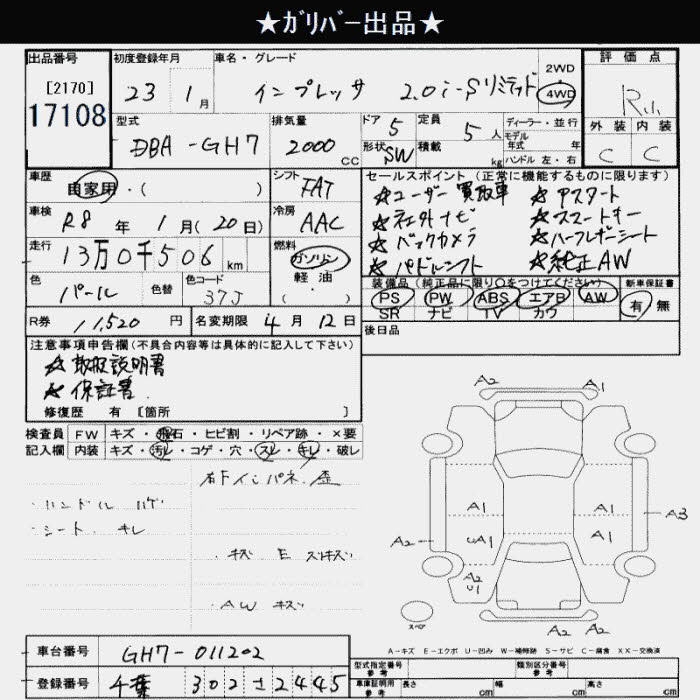 ★ｶﾞﾘﾊﾞｰ出品★
出品番号 初度登録年月 車名・グレード 評価点
[2170]
17108
23 1月 インプレッサ 2.0i-Sリミテッド 2WD 4WD
型式 DBA-GH7 排気量 2000 CC ドア 5 定員 5人 ディーラー・並行
形状 SW 積載 kg モデル年式 年 ハンドル 左・右
外装 内装
C C
車歴 自家用・( ) シフト FAT
車検 R8年 1月 (20日) 冷房 AAC
走行 13万0千506 km 燃料 ガソリン
軽油
・( )
色 パール 色替 色コード 37J
R券 11,520円 名変期限 4月 12日
セールスポイント (正常に機能するものに限ります)
★ユーザー買取車 ★アスタート
★社外ナビ ★スマートキー
★バックカメラ ★ハーフレザーシート
★パドルシフト ★純正AW
装備品(純正品に限り○をつけてください) 新車保証書
PS PW ABS エアB AW 有 無
SR ナビ TV カワ
後日品
注意事項申告欄(不具合内容等は具体的に記入して下さい)
★取扱説明書
★保証書
修復歴 有 [箇所 ]
検査員 FW キズ・飛石・ヒビ割・リペア跡・×要
記入欄 内装 キズ・汚れ・コゲ・穴・スレ・キレ・破レ
右Fインパネ 歪
・ハンドル ハゲ
・シート キレ
・キズ E スリキズ
・AW キズ
A2 A1
A1 A1 A3
A2 uA1 A1
A2
U1
A2 A2
スペア
A-キズ E-エクボ U-凹み W-補修跡 S-サビ C-腐食 XX-交換済
車台番号 GH7-011202
登録番号 千葉 302 さ 2445
型式指定番号 参考 類別区分番号 参考
車庫証明用 参考 長さ cm 幅 cm 高さ cm